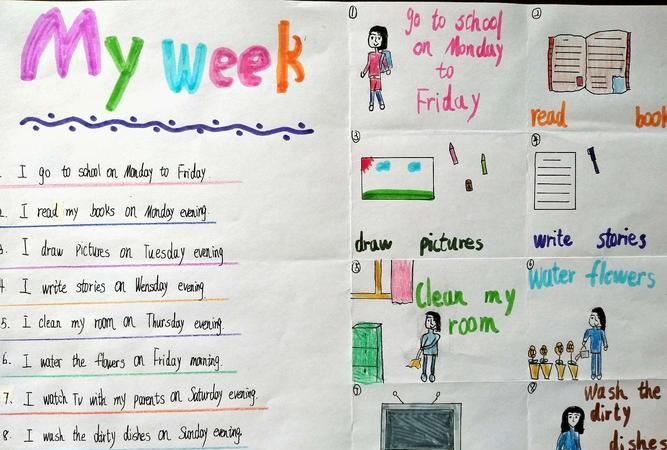 My week
1. I go to school on Monday to Friday.
2. I read my books on Monday evening.
3. I draw Pictures on Tuesday evening
4 I write stories on Wensday evening.
5. I clean my room on Thursday evening.
6. I water the flowers on Friday morning.
7. I watch Tv with my parents on Saturday evening.
8. I wash the dirty dishes on Sunday evening.
①
go to school
on Monday
to
Friday
②
read book
③
draw pictures
④
write stories
⑤
Clean my
room
⑥
Water flowers
⑦
⑧
Wash the
dirty
dishes